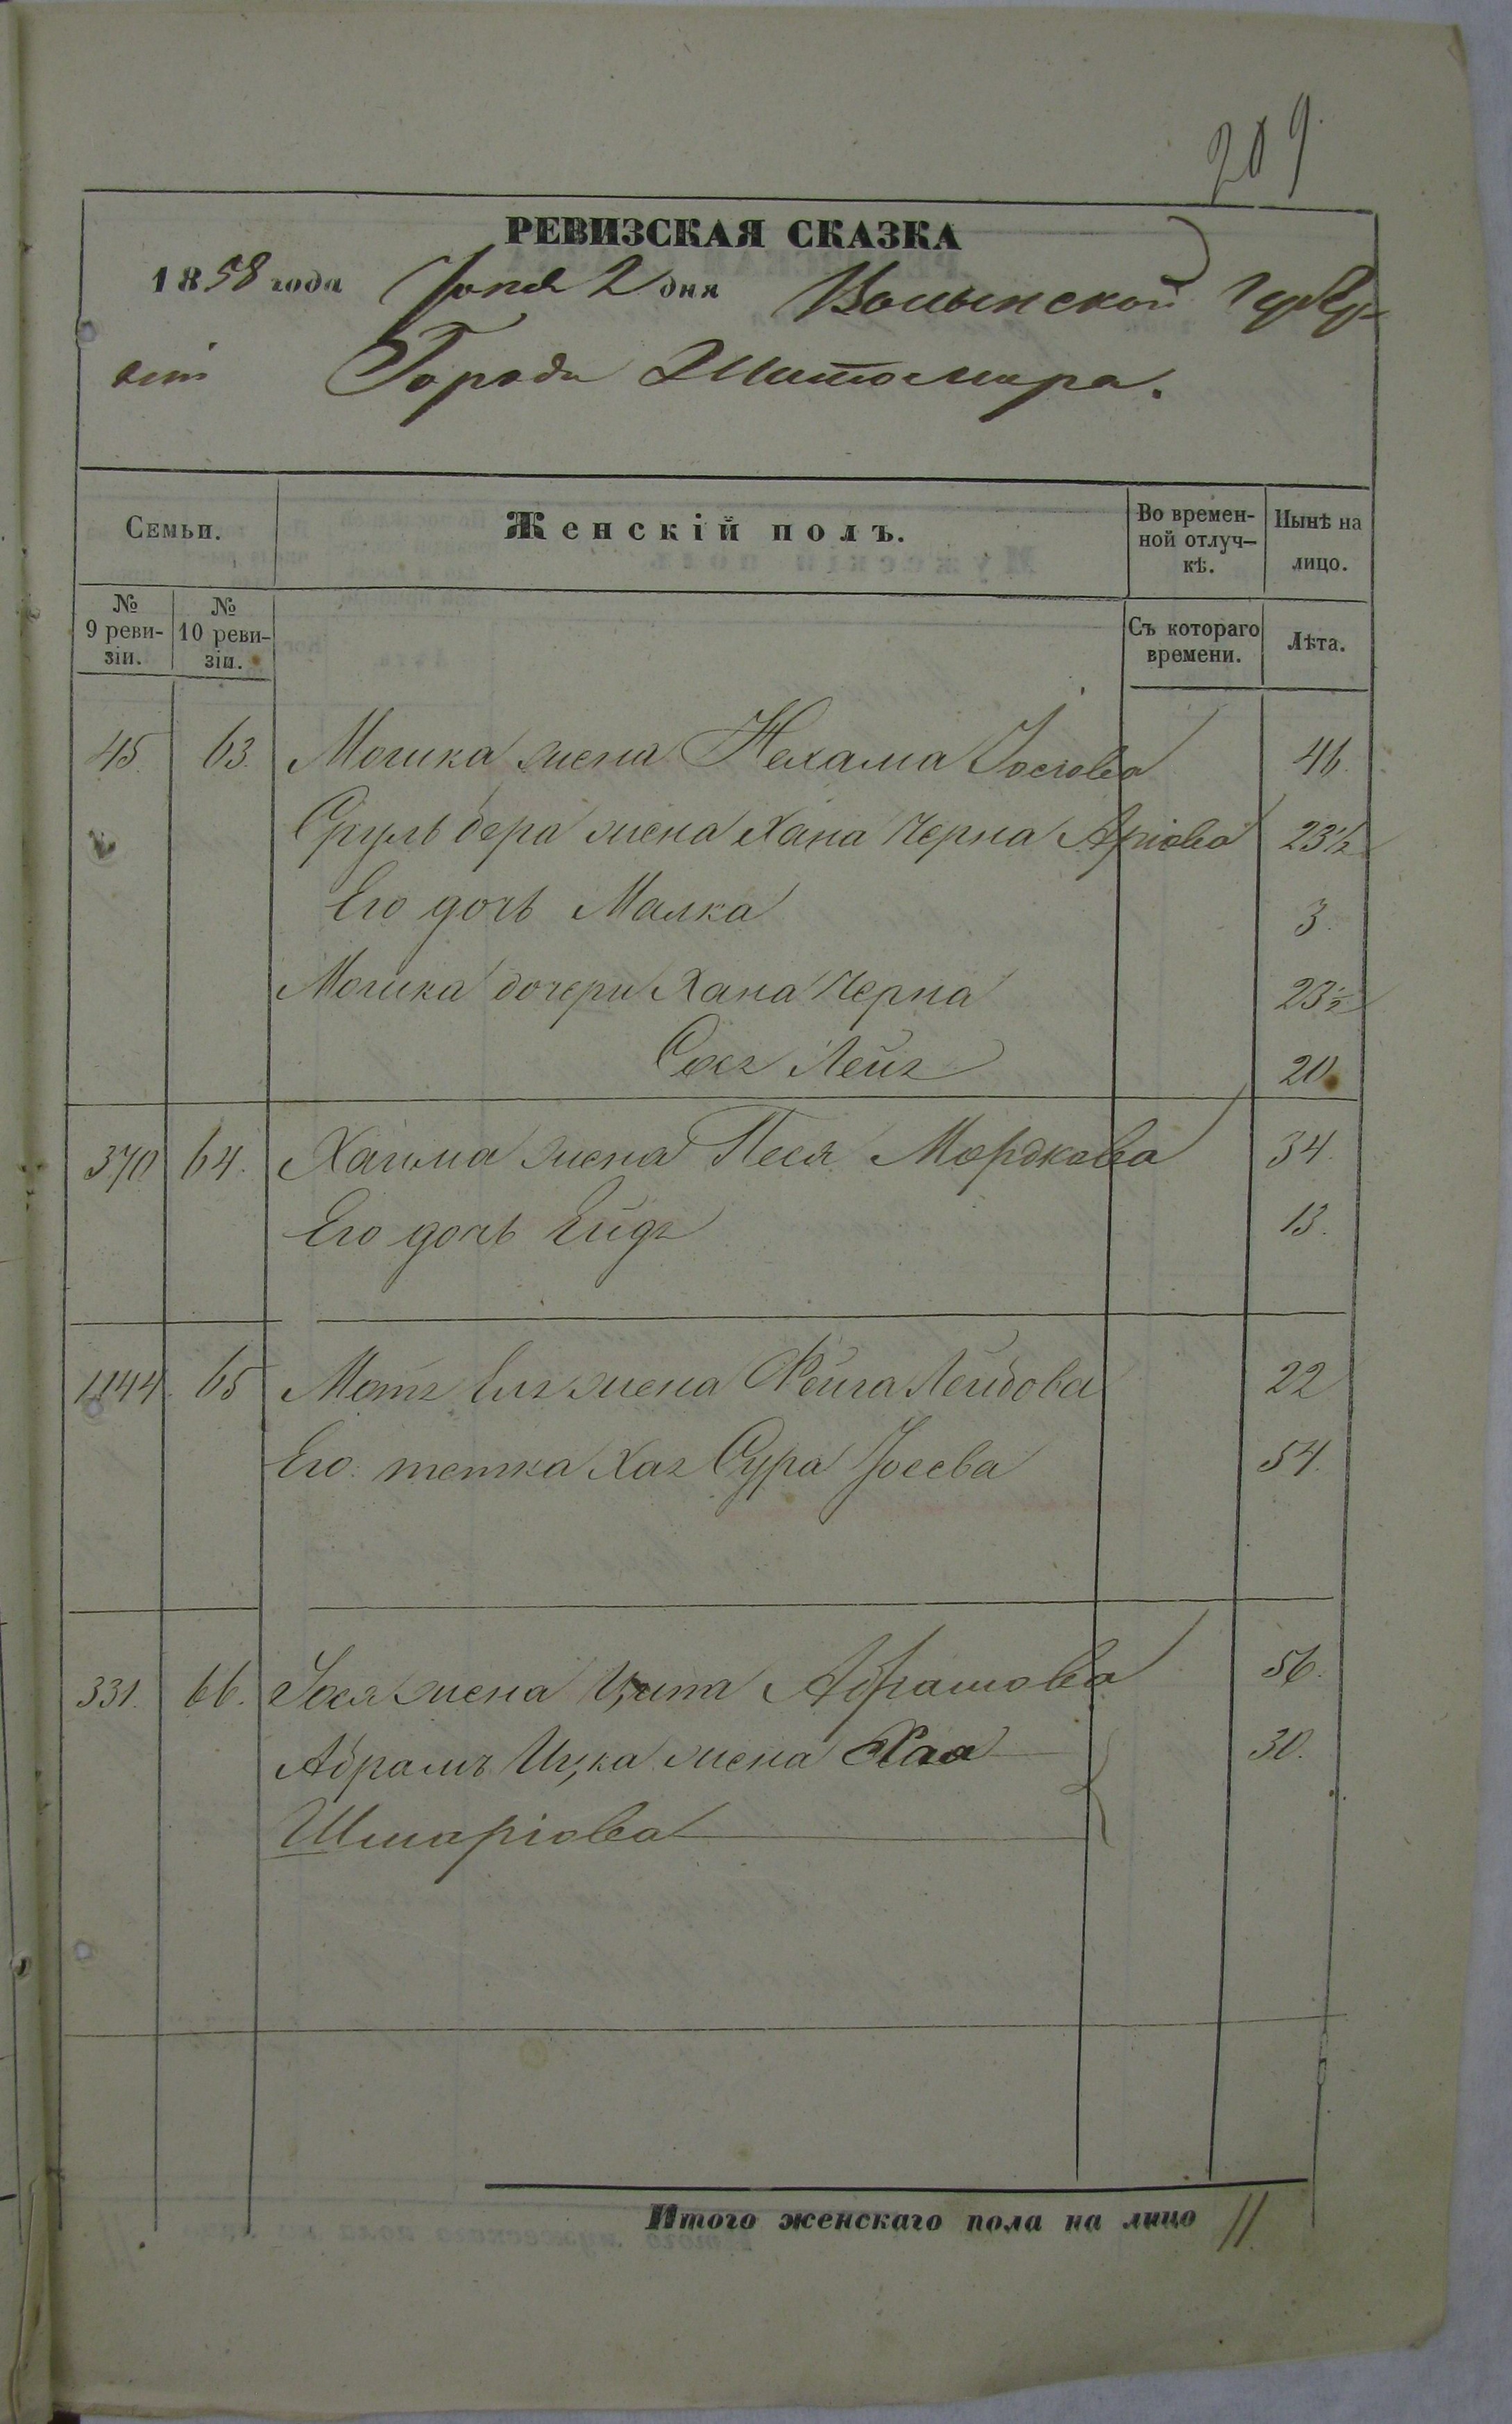 209.
РЕВИЗСКАЯ СКАЗКА
1858 года Іюня 2 дня Волынской Губер-
ніи Города Житомира.
Семьи. Женскій полъ. Во времен- Нынѣ на
ной отлуч- лицо.
кѣ.
№ №
9 реви- 10 реви- Съ котораго Лѣта.
зіи. зіи. времени.
45. 63. Мошка жена Нехама Іосіова 46.
Сруль бера жена Хана Черна Аріова 23½
Его дочь Малка 3.
Мошка дочери Хана Черна 23½
Сося Лея 20
370 64. Хаима жена Песя Мордкова 34.
Его дочь Ейдя 13.
1144. 65 жена Фейга Лейбова 22
Его тетка Хая Сура Іосева 54.
331. 66. Іося жена Абрамова 56.
Абрамъ Ицка жена Хая 30.
Шмаріова
Итого женскаго пола на лицо 11.